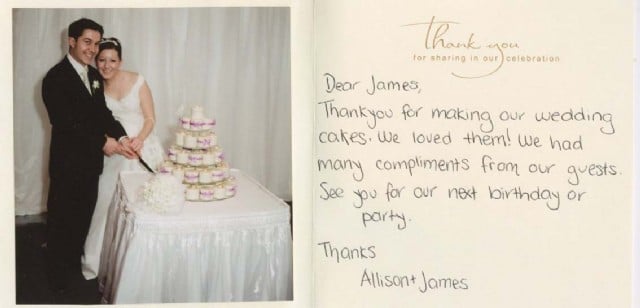 thank you
for sharing in our celebration
Dear James,
Thankyou for making our wedding
cakes. We loved them! We had
many compliments from our guests.
See you for our next birthday or
party.
Thanks
Allison + James